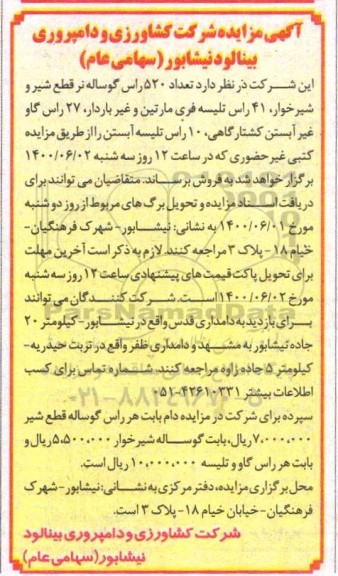 آگهی مزایده شرکت کشاورزی و دامپروری
بینالود نیشابور (سهامی عام)
این شرکت در نظر دارد تعداد ۵۲۰ راس گوساله نر قطع شیر و
شیرخوار، ۴۱ راس تلیسه فری مارتین و غیر باردار، ۲۷ راس گاو
غیر آبستن کشتارگاهی، ۱۰ راس تلیسه آبستن را از طریق مزایده
کتبی غیرحضوری که در ساعت ۱۲ روز سه شنبه ۱۴۰۰/۰۶/۰۲
برگزار خواهد شد به فروش برساند. متقاضیان می توانند برای
دریافت اسناد مزایده و تحویل برگ های مربوط از روز دوشنبه
مورخ ۱۴۰۰/۰۶/۰۱ به نشانی: نیشابور- شهرک فرهنگیان-
خیام ۱۸- پلاک ۳ مراجعه کنند. لازم به ذکر است آخرین مهلت
برای تحویل پاکت قیمت های پیشنهادی ساعت ۱۲ روز سه شنبه
مورخ ۱۴۰۰/۰۶/۰۲ است. شرکت کنندگان می توانند
برای بازدید به دامداری قدس واقع در نیشابور- کیلومتر ۲۰
جاده نیشابور به مشهد و دامداری ظفر واقع در تربت حیدریه-
کیلومتر ۵ جاده زاوه مراجعه کنند. شماره تماس برای کسب
اطلاعات بیشتر ۴۳۶۱۰۳۳۱-۰۵۱
سپرده برای شرکت در مزایده دام بابت هر راس گوساله قطع شیر
۷،۰۰۰،۰۰۰ ریال، بابت گوساله شیرخوار ۵،۵۰۰،۰۰۰ ریال و
بابت هر راس گاو و تلیسه ۱۰،۰۰۰،۰۰۰ ریال است.
محل برگزاری مزایده، دفتر مرکزی به نشانی: نیشابور- شهرک
فرهنگیان- خیابان خیام ۱۸- پلاک ۳ است.
شرکت کشاورزی و دامپروری بینالود
نیشابور (سهامی عام)
ParsNamadData